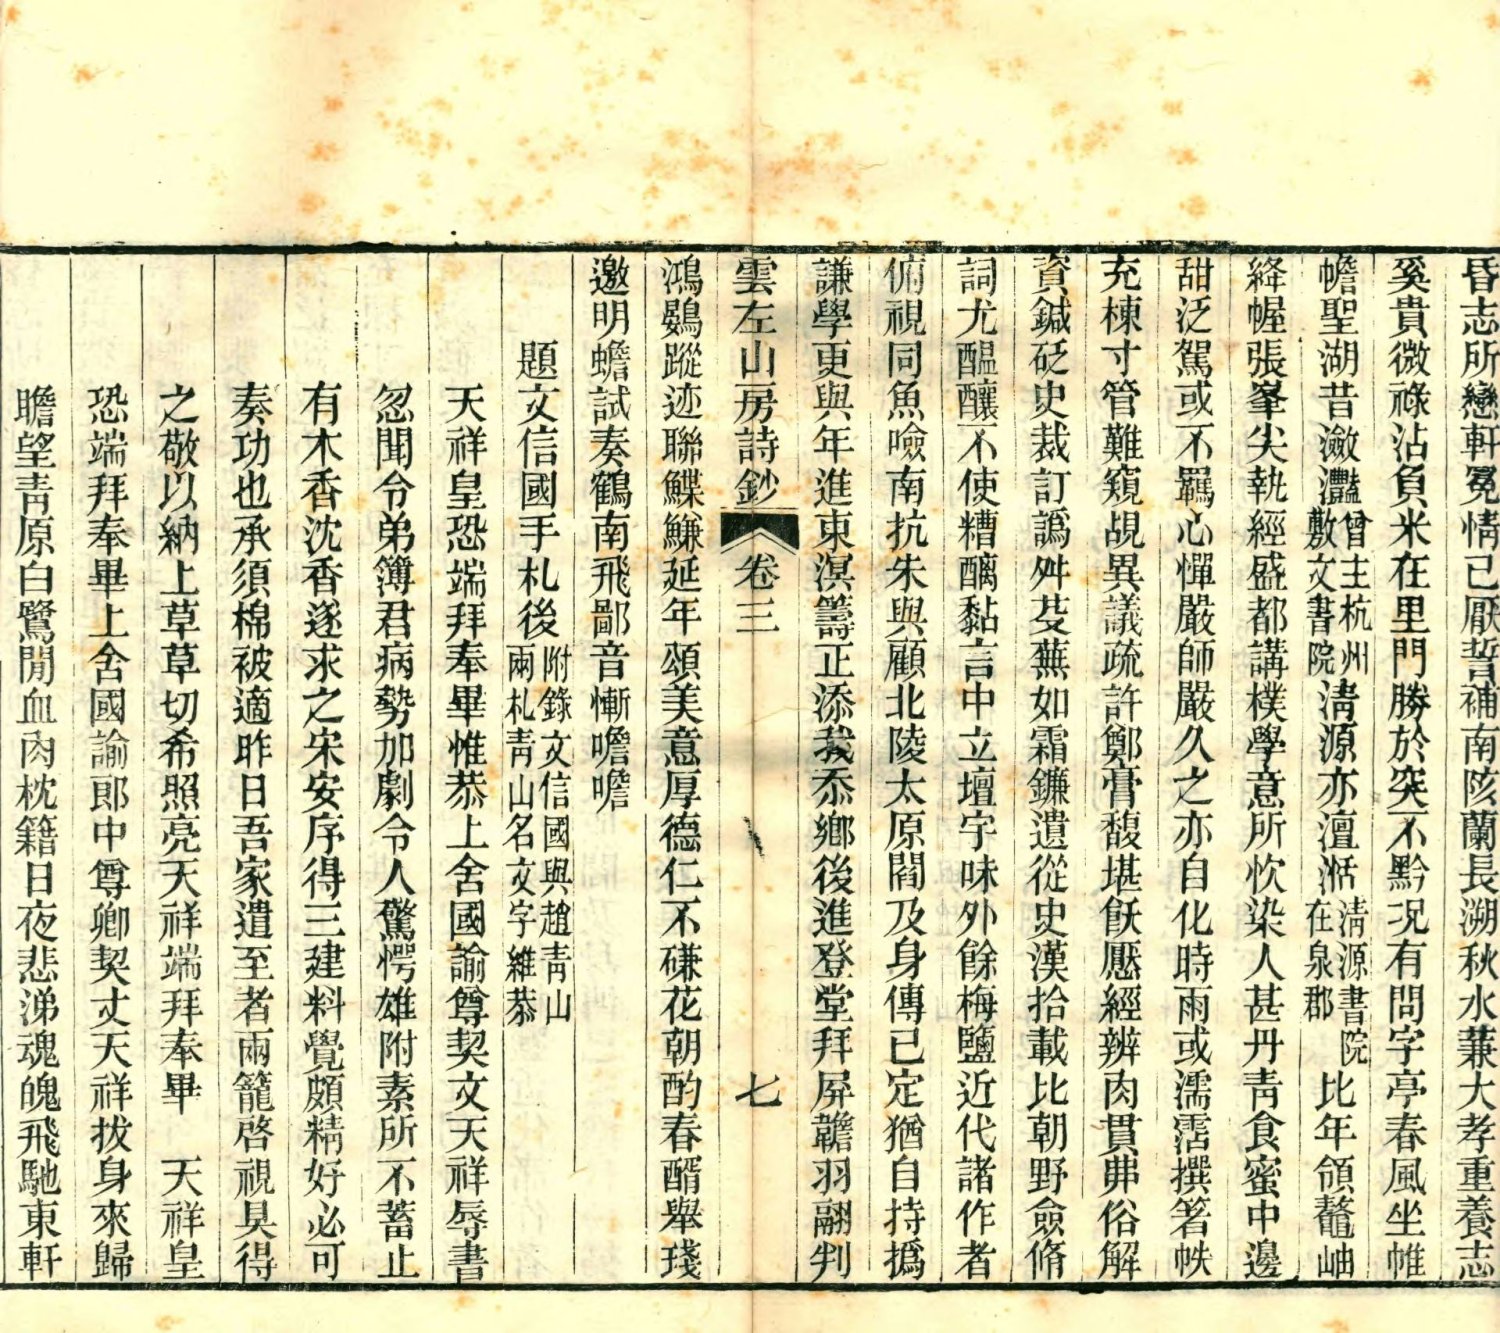 昏志所戀軒冕情已厭誓補南陔蘭長溯秋水蒹大孝重養志
奚貴微祿沾負米在里門勝於突不黔況有問字亭春風坐帷
幨聖湖昔瀲灩曾主杭州敷文書院清源亦澶湉清源書院在泉郡比年領鼇岫
絳幄張峯尖執經盛都講樸學意所忺染人甚丹青食蜜中邊
甜泛駕或不羈心憚嚴師嚴久之亦自化時雨或濡霑撰箸帙
充棟寸管難窺覘異議疏許鄭膏馥堪飫厭經辨肉貫弗俗解
資鍼砭史裁訂譌舛芟蕪如霜鐮遺從史漢拾載比朝野僉脩
詞尤醞釀不使糟醨黏言中立壇宇味外餘梅鹽近代諸作者
俯視同魚噞南抗朱與顧北陵太原閻及身傳已定猶自持撝
謙學更與年進東溟籌正添我忝鄉後進登堂拜屏襜羽翮判
雲左山房詩鈔 卷三 七
鴻鷃蹤迹聯鰈鰜延年頌美意厚德仁不磏花朝酌春醑舉琖
邀明蟾試奏鶴南飛鄙音慚噡噡
題文信國手札後附錄文信國與趙青山兩札青山名文字維恭
天祥皇恐端拜奉畢惟恭上舍國諭尊契丈天祥辱書
忽聞令弟簿君病勢加劇令人驚愕雄附素所不蓄止
有木香沈香遂求之宋安序得三建料覺頗精好必可
奏功也承須棉被適昨日吾家遣至者兩籠啓視具得
之敬以納上草草切希照亮天祥端拜奉畢 天祥皇
恐端拜奉畢上舍國諭郎中尊卿契丈天祥拔身來歸
瞻望青原白鷺閒血肉枕籍日夜悲涕魂魄飛馳東軒